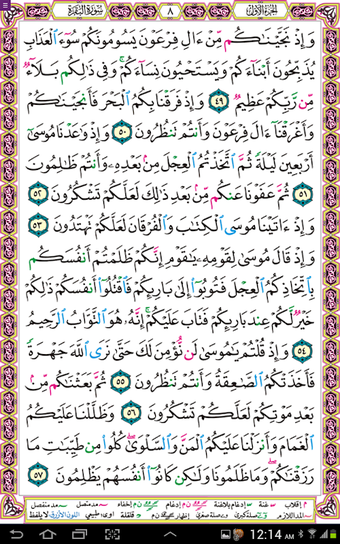 الجزء الأول ٨ سورة البقرة
وَإِذْ نَجَّيْنَٰكُم مِّنْ ءَالِ فِرْعَوْنَ يَسُومُونَكُمْ سُوٓءَ ٱلْعَذَابِ
يُذَبِّحُونَ أَبْنَآءَكُمْ وَيَسْتَحْيُونَ نِسَآءَكُمْ ۚ وَفِى ذَٰلِكُم بَلَآءٌ
مِّن رَّبِّكُمْ عَظِيمٌ ٤٩ وَإِذْ فَرَقْنَا بِكُمُ ٱلْبَحْرَ فَأَنجَيْنَٰكُمْ
وَأَغْرَقْنَآ ءَالَ فِرْعَوْنَ وَأَنتُمْ تَنظُرُونَ ٥٠ وَإِذْ وَٰعَدْنَا مُوسَىٰٓ
أَرْبَعِينَ لَيْلَةً ثُمَّ ٱتَّخَذْتُمُ ٱلْعِجْلَ مِنۢ بَعْدِهِۦ وَأَنتُمْ ظَٰلِمُونَ
٥١ ثُمَّ عَفَوْنَا عَنكُم مِّنۢ بَعْدِ ذَٰلِكَ لَعَلَّكُمْ تَشْكُرُونَ ٥٢
وَإِذْ ءَاتَيْنَا مُوسَى ٱلْكِتَٰبَ وَٱلْفُرْقَانَ لَعَلَّكُمْ تَهْتَدُونَ ٥٣
وَإِذْ قَالَ مُوسَىٰ لِقَوْمِهِۦ يَٰقَوْمِ إِنَّكُمْ ظَلَمْتُمْ أَنفُسَكُم
بِٱتِّخَاذِكُمُ ٱلْعِجْلَ فَتُوبُوٓا۟ إِلَىٰ بَارِئِكُمْ فَٱقْتُلُوٓا۟ أَنفُسَكُمْ ذَٰلِكُمْ
خَيْرٌ لَّكُمْ عِندَ بَارِئِكُمْ فَتَابَ عَلَيْكُمْ ۚ إِنَّهُۥ هُوَ ٱلتَّوَّابُ ٱلرَّحِيمُ
٥٤ وَإِذْ قُلْتُمْ يَٰمُوسَىٰ لَن نُّؤْمِنَ لَكَ حَتَّىٰ نَرَى ٱللَّهَ جَهْرَةً
فَأَخَذَتْكُمُ ٱلصَّٰعِقَةُ وَأَنتُمْ تَنظُرُونَ ٥٥ ثُمَّ بَعَثْنَٰكُم مِّنۢ
بَعْدِ مَوْتِكُمْ لَعَلَّكُمْ تَشْكُرُونَ ٥٦ وَظَلَّلْنَا عَلَيْكُمُ
ٱلْغَمَامَ وَأَنزَلْنَا عَلَيْكُمُ ٱلْمَنَّ وَٱلسَّلْوَىٰ ۖ كُلُوا۟ مِن طَيِّبَٰتِ مَا
رَزَقْنَٰكُمْ ۖ وَمَا ظَلَمُونَا وَلَٰكِن كَانُوٓا۟ أَنفُسَهُمْ يَظْلِمُونَ ٥٧
12:14 AM